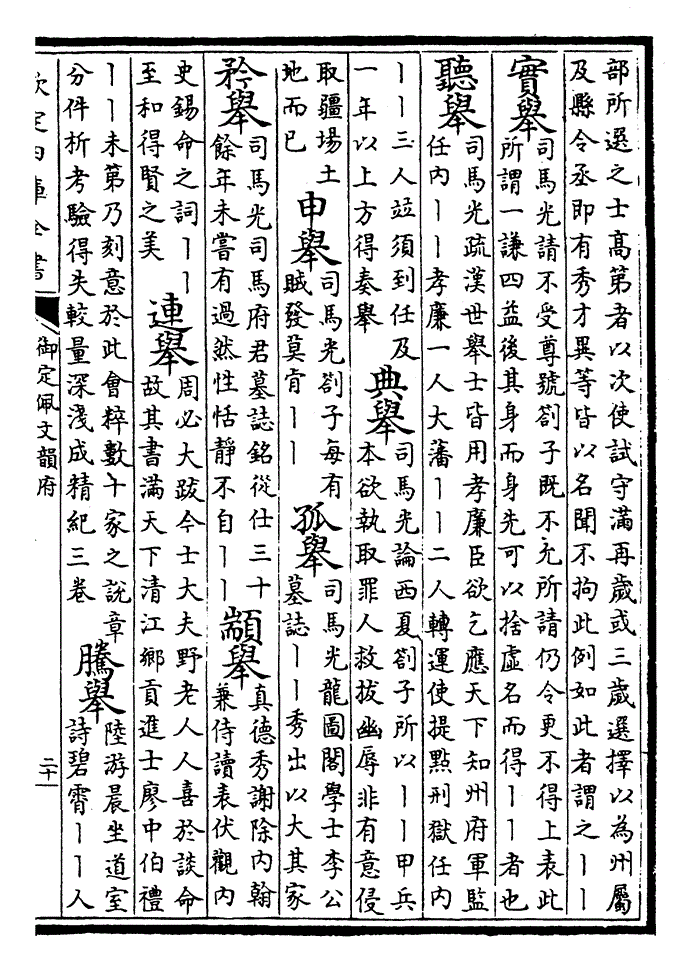 部所選之士髙第者以次使試守滿再歲或三歲選擇以為州屬
及縣令丞即有秀才異等皆以名聞不拘此例如此者謂之丨丨
實舉
司馬光請不受尊號劄子既不允所請仍令更不得上表此
所謂一謙四益後其身而身先可以捨虛名而得丨丨者也
聽舉
司馬光疏漢世舉士皆用孝廉臣欲乞應天下知州府軍監
任內丨丨孝廉一人大藩丨丨二人轉運使提點刑獄任內
丨丨三人竝須到任及
一年以上方得奏舉
典舉
司馬光論西夏劄子所以丨丨甲兵
本欲執取罪人救拔幽辱非有意侵
取疆場土
地而已
申舉
司馬光劄子每有
賊發莫肯丨丨
孤舉
司馬光龍圖閣學士李公
墓誌丨丨秀出以大其家
矜舉
司馬光司馬府君墓誌銘從仕三十
餘年未嘗有過然性恬靜不自丨丨
顓舉
真德秀謝除內翰
兼侍讀表伏觀內
史錫命之詞丨丨
至和得賢之美
連舉
周必大跋今士大夫野老人人喜於談命
故其書滿天下清江鄉貢進士廖中伯禮
丨丨未第乃刻意於此會粹數十家之說章
分件析考驗得失較量深淺成精紀三卷
騰舉
陸游晨坐道室
詩碧霄丨丨人
欽定四庫全書
御定佩文韻府
二十